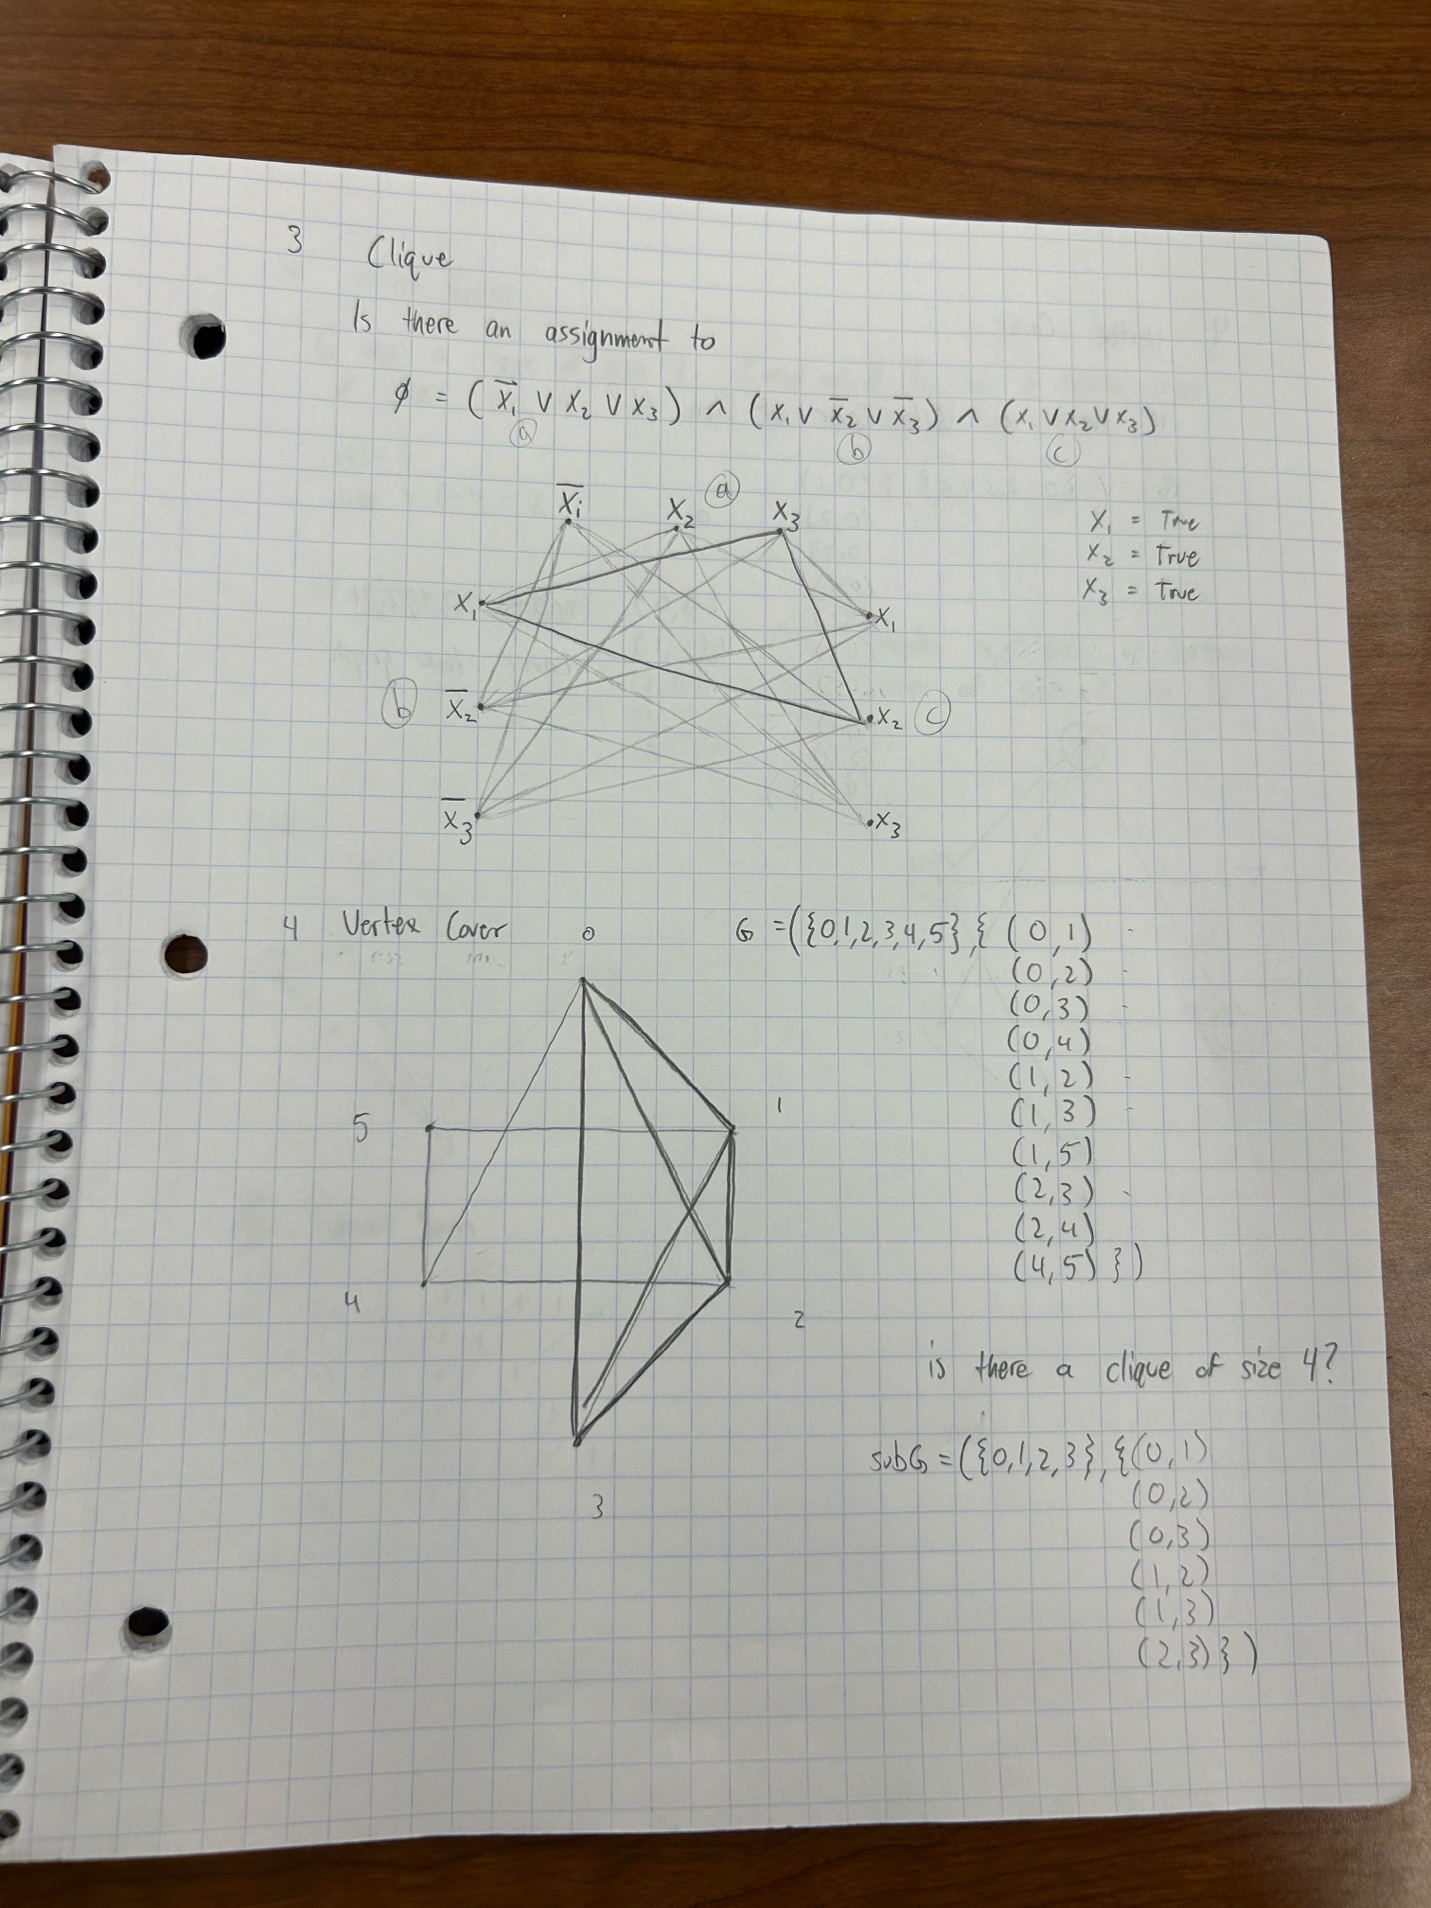 3 Clique
Is there an assignment to
ϕ = ( x̅₁ ∨ x₂ ∨ x₃ ) ∧ ( x₁ ∨ x̅₂ ∨ x̅₃ ) ∧ ( x₁ ∨ x₂ ∨ x₃ )
a b c
a
x̅₁ x₂ x₃
x₁ = True
x₂ = True
x₃ = True
x₁ x₁
b x̅₂ x₂ c
x̅₃ x₃
4 Vertex Cover
0
G = ({0,1,2,3,4,5}, { (0,1)
(0,2)
(0,3)
(0,4)
(1,2)
(1,3)
(1,5)
(2,3)
(2,4)
(4,5) })
5 1
4 2
3
is there a clique of size 4?
subG = ({0,1,2,3}, {(0,1)
(0,2)
(0,3)
(1,2)
(1,3)
(2,3) } )